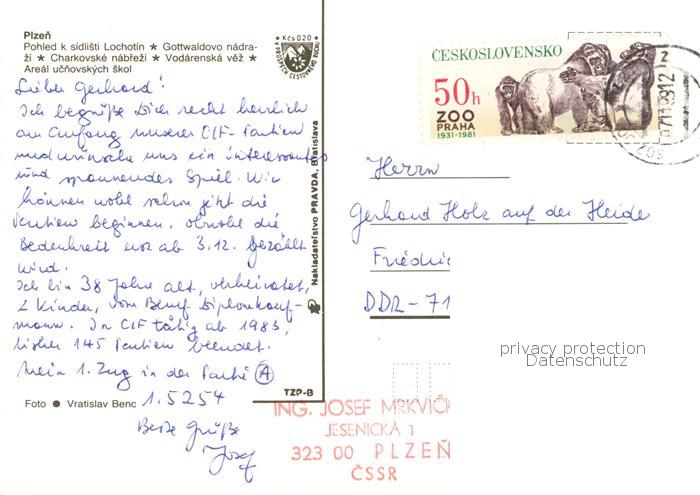 Plzeň
Pohled k sídlišti Lochotín ★ Gottwaldovo nádra-
ží ★ Charkovské nábřeží ★ Vodárenská věž ★
Areál učňovských škol
Kčs 0,20
Lieber Gerhard!
Ich begrüße Dich recht herzlich
am Anfang unserer CIF-Partien
und wünsche uns ein interessantes
und spannendes Spiel. Wir
können wohl schon jetzt die
Partien beginnen, obwohl die
Bedenkzeit erst ab 3.12. gezählt
wird.
Ich bin 38 Jahre alt, verheiratet,
2 Kinder, vom Beruf Diplomkauf-
mann. In CIF tätig ab 1983,
bisher 145 Partien beendet.
Mein 1. Zug in der Partie A
1. 5254
Beste Grüße
Josef
Foto ● Vratislav Benc
TZP-B
Nakladateľstvo PRAVDA, Bratislava
ČESKOSLOVENSKO
50h
ZOO
PRAHA
1931-1981
Herrn
Gerhard Holz auf der Heide
Friedric
DDR-71
privacy protection
Datenschutz
ING. JOSEF MRKVIČK
JESENICKÁ 1
323 00 PLZEŇ
ČSSR